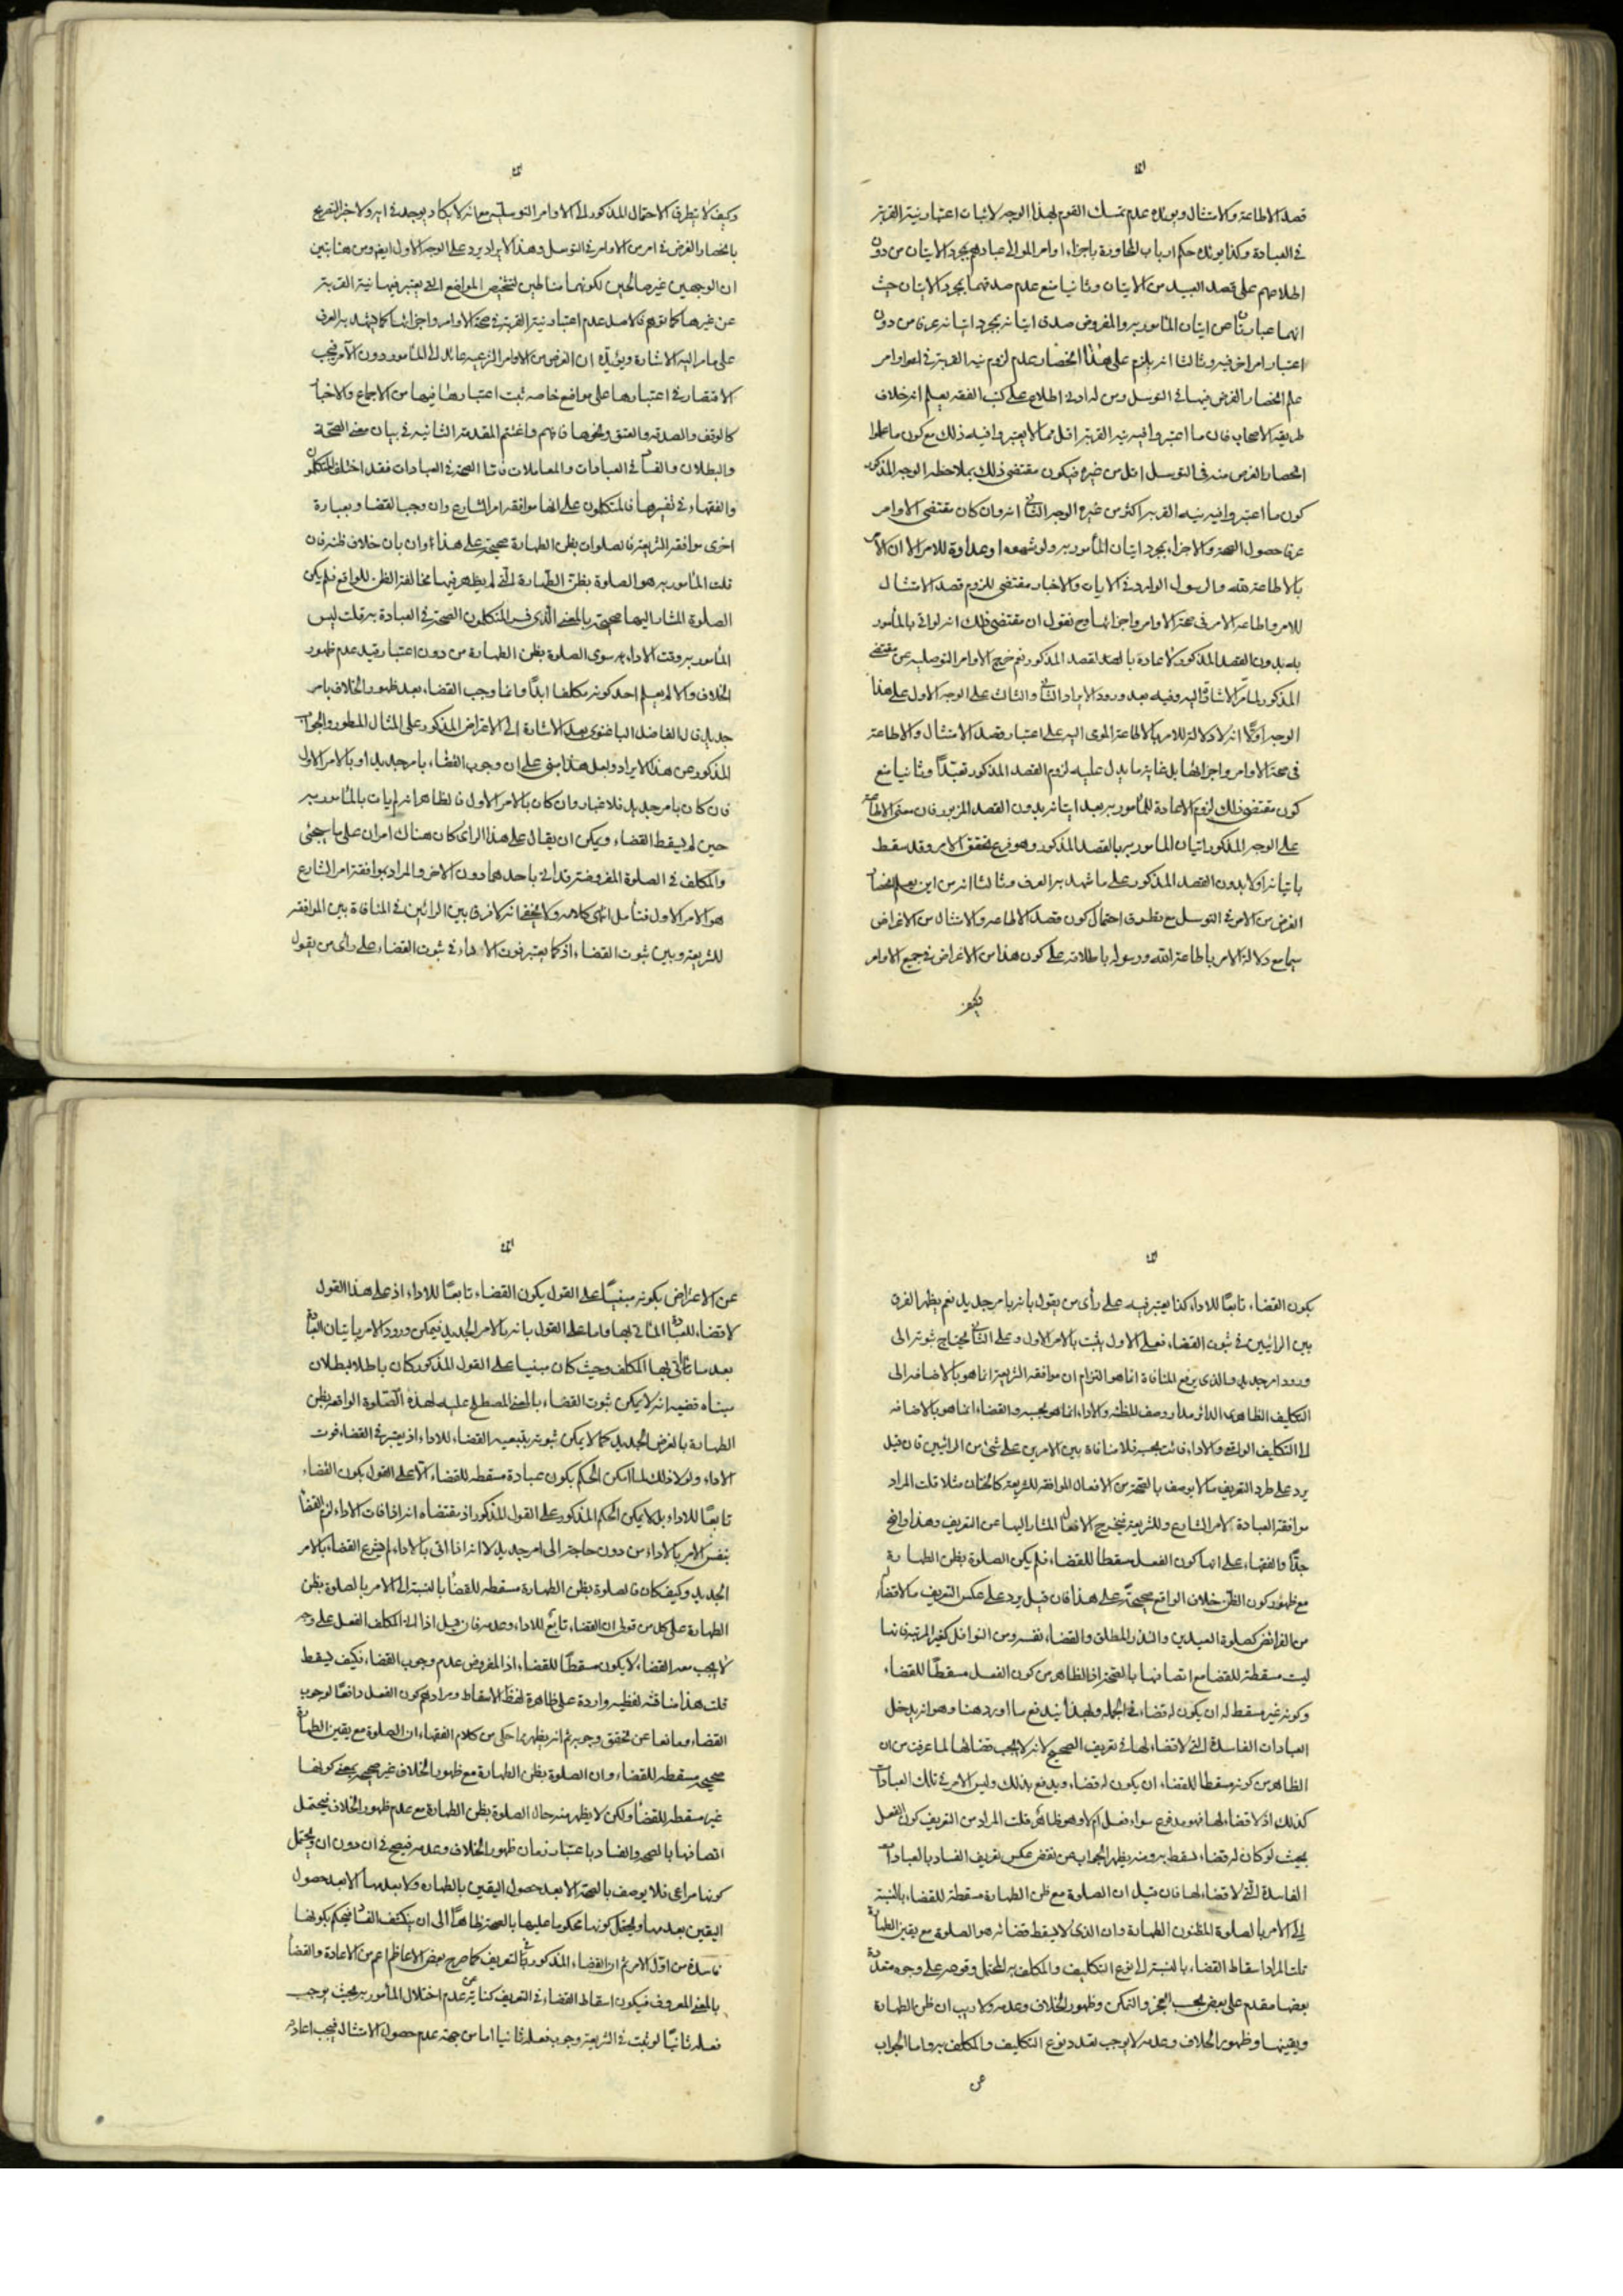 قصد الاطاعة والامتثال ويؤيده عدم تمسك القوم لهذا الوجه لاثبات اعتبار نية القربة
في العبادة وكذا يؤيده حكم ارباب المحاورة باجزاء اوامر الموالى عبادهم بمجرد الاتيان من دون
اطلاعهم على قصد العبيد من الاتيان وثانيا منع عدم صدقهما بمجرد الاتيان حيث
انهما عبارتان عن اتيان المأمور به والمفروض صدق اتيانه بمجرد اتيانه عرفا من دون
اعتبار امر اخر فيه وثالثا انه يلزم على هذا انحصار عدم لزوم نية القربة في اوامر
علم انحصار الغرض فيها في التوسل ومن له ادنى اطلاع على كتب الفقه يعلم انه خلاف
طريقة الاصحاب فان ما اعتبروا فيه نية القربة اقل مما لا يعتبروا فيه ذلك مع كون ما علموا
انحصار الغرض منه في التوسل اقل من غيره فيكون مقتضى ذلك بملاحظة الوجه المذكور
كون ما اعتبروا فيه نية القربة اكثر من غيره الوجه الثاني انه وان كان مقتضى الاوامر
عرفا حصول الصحة والاجزاء بمجرد اتيان المأمور به ولو شهوة او عداوة للامر الا ان الامر
بالاطاعة لله والرسول الوارد في الايات والاخبار مقتضى للزوم قصد الامتثال
للامر واطاعة الامر في صحة الاوامر واجزائها وح نقول ان مقتضى ذلك انه لو اتى بالمأمور
به بدون القصد المذكور لاعادة بالقصد المذكور نعم خرج الاوامر التوصلية عن مقتضى
المذكور لما مر الاشارة اليه وفيه بعد ورود الايراد الثاني والثالث على الوجه الاول على هذا
الوجه اولا انه لا دلالة للامر بالاطاعة المومى اليه على اعتبار قصد الامتثال والاطاعة
في صحة الاوامر واجزائها بل غاية ما يدل عليه لزوم القصد المذكور تعبدا وثانيا منع
كون مقتضى ذلك لزوم الاعادة للمأمور به بعد اتيانه بدون القصد المزبور فان معنى الاطاعة
على الوجه المذكور اتيان المأمور به بالقصد المذكور وهو فرع تحقق الامر وقد سقط
باتيانه اولا بدون القصد المذكور على ما شهد به العرف وثالثا انه من اين يعلم انحصار
الغرض من الامر في التوسل مع تطرق احتمال كون قصد الاطاعة والامتثال من الاغراض
سيما مع دلالة الامر باطاعة الله ورسوله باطلاقه على كون هذا من الاغراض في جميع الاوامر
وكيف لا يتطرق الاحتمال المذكور الى الاوامر التوسلية مع انه لا يكاد يوجد في اية ولا خبر التصريح
بانحصار الغرض في امر من الاوامر في التوسل وهذا الايراد يرد على الوجه الاول ايضا ومن هنا يتبين
ان الوجهين غير صالحين لكونهما مناطين لتشخيص المواضع التي يعتبر فيها نية القربة
عن غيرها كما توهم فالاصل عدم اعتبار نية القربة في صحة الاوامر واجزائها كما يشهد به العرف
على ما مر اليه الاشارة ويؤيده ان الغرض من الاوامر الشرعية عائد الى المأمور دون الآمر فيجب
الاقتصار في اعتبارها على مواضع خاصة ثبت اعتبارها فيها من الاجماع والاخبار
كالوقف والصدقة والعتق ونحوها فافهم واغتنم المقدمة الثانية في بيان معنى الصحة
والبطلان والفساد في العبادات والمعاملات فاما الصحة في العبادات فقد اختلف المتكلمون
والفقهاء في تفسيرها فالمتكلمون على انها موافقة امر الشارع وان وجب القضاء وبعبارة
اخرى موافقة الشريعة فالصلوات بظن الطهارة صحيحة على هذا وان بان خلاف ظنه فان
قلت المأمور به هو الصلوة بظن الطهارة التي لم يظهر فيها مخالفة الظن للواقع فلم يكن
الصلوة المشار اليها صحيحة بالمعنى الذي فسر المتكلمون الصحة في العبادة به قلت ليس
المأمور به وقت الاداء سوى الصلوة بظن الطهارة من دون اعتبار قيد عدم ظهور
الخلاف والا لم يعلم احد كونه مكلفا ابدا وانما وجب القضاء بعد ظهور الخلاف بامر
جديد قال الفاضل الباغنوى بعد الاشارة الى الاعتراض المذكور على المثال المسطور والجواب
المذكور عن هذا الايراد ولعل هذا مبني على ان وجوب القضاء بامر جديد او بالامر الاول
فان كان بامر جديد فلا غبار وان كان بالامر الاول فالظاهر انه لم يات بالمأمور به
حين لم يسقط القضاء ويمكن ان يقال على هذا الراى كان هناك امران على ما سيجئ
والمكلف في الصلوة المفروضة قد اتى باحدهما دون الاخر والمراد بموافقة امر الشارع
هو الامر الاول فتأمل انتهى كلامه ولا يخفى انه لا فرق بين الرائين في المنافاة بين الموافقة
للشريعة وبين ثبوت القضاء اذ كما يعتبر فوت الاداء في ثبوت القضاء على رأى من يقول
يكون القضاء تابعا للاداء كذا يعتبر فيه على رأى من يقول بانه بامر جديد نعم يظهر الفرق
بين الرائيين في ثبوت القضاء فعلى الاول يثبت بالامر الاول وعلى الثاني يحتاج ثبوته الى
ورود امر جديد والذى يرفع المنافاة انما هو التزام ان موافقة الشريعة انما هو بالاضافة الى
التكليف الظاهرى الدائر مدار وصف المظنة والاداء انما هو بحسبه والقضاء انما هو بالاضافة
الى التكليف الواقعي والاداء فائت بحسبه فلا منافاة بين الامرين على شئ من الرائيين فان قيل
يرد على طرد التعريف ما لا يوصف بالصحة من الافعال الموافقة للشريعة كالختان مثلا قلت المراد
موافقة العبادة لامر الشارع وللشريعة فيخرج الافعال المشار اليها عن التعريف وهذا واضح
جدا والفقهاء على انها كون الفعل مسقطا للقضاء فلم يكن الصلوة بظن الطهارة
مع ظهور كون الظن خلاف الواقع صحيحة على هذا فان قيل يرد على عكس التعريف ما لا قضاء له
من الفرائض كصلوة العيدين والنذر المطلق والقضاء نفسه ومن النوافل كغير المرتبة فانها
ليست مسقطة للقضاء مع اتصافها بالصحة اذ الظاهر من كون الفعل مسقطا للقضاء
وكونه غير مسقط له ان يكون له قضاء في الجملة وبهذا يندفع ما اورد هنا وهو انه يدخل
العبادات الفاسدة التي لا قضاء لها في تعريف الصحيح لانه لا يجب قضائها لما عرفت من ان
الظاهر من كونه مسقطا للقضاء ان يكون له قضاء ويدفع بذلك وليس الامر في تلك العبادات
كذلك اذ لا قضاء لها فهو مدفوع سواء فعل ام لا وهو ظاهر قلت المراد من التعريف كون الفعل
بحيث لو كان له قضاء لسقط به ومنه يظهر الجواب عن نقض عكس تعريف الفساد بالعبادات
الفاسدة التي لا قضاء لها فان قيل ان الصلوة مع ظن الطهارة مسقطة للقضاء بالنسبة
الى الامر بالصلوة المظنون الطهارة وان الذى لا يسقط قضائه هو الصلوة مع يقين الطهارة
قلت المراد اسقاط القضاء بالنسبة الى نوع التكليف والمكلف به المحتمل وقوعه على وجوه متعددة
بعضها مقدم على بعض بحسب العجز والتمكن وظهور الخلاف وعدمه ولا ريب ان ظن الطهارة
ويقينها وظهور الخلاف وعدمه لا يوجب تعدد نوع التكليف والمكلف به واما الجواب
عن
عن الاعتراض بكونه مبنيا على القول بكون القضاء تابعا للاداء اذ على هذا القول
لا قضاء للعبادة المأتى بها واما على القول بانه بالامر الجديد فيمكن ورود الامر باتيان العبادة
بعد ما أتى بها المكلف وحيث كان مبنيا على القول المذكور كان باطلا ببطلان
مبناه ففيه انه لا يمكن ثبوت القضاء بالمعنى المصطلح عليه لهذه الصلوة الواقعة بظن
الطهارة بالفرض الجديد كما لا يمكن ثبوته بتبعية القضاء للاداء اذ يعتبر في القضاء فوت
الاداء ولولا ذلك لما امكن الحكم بكون عبادة مسقطة للقضاء الا على القول بكون القضاء
تابعا للاداء بل لا يمكن الحكم المذكور على القول المذكور اذ مقتضاه انه اذا فات الاداء لزم القضاء
بنفس الامر بالاداء من دون حاجة الى امر جديد لا انه اذا اتى بالاداء لم يشرع القضاء بالامر
الجديد وكيف كان فالصلوة بظن الطهارة مسقطة للقضاء بالنسبة الى الامر بالصلوة بظن
الطهارة على كل من قولى ان القضاء تابع للاداء وعدمه فان قيل اذا اتى المكلف الفعل على وجه
لا يجب معه القضاء لا يكون مسقطا للقضاء اذ المفروض عدم وجوب القضاء فكيف يسقط
قلت هذا مناقشة لفظية واردة على ظاهر لفظ الاسقاط ومرادهم كون الفعل دافعا لوجوب
القضاء ومانعا عن تحقق وجوبه ثم انه يظهر مما حكى من كلام الفقهاء ان الصلوة مع يقين الطهارة
صحيحة مسقطة للقضاء وان الصلوة بظن الطهارة مع ظهور الخلاف غير صحيحة بمعنى كونها
غير مسقطة للقضاء ولكن لا يظهر منه حال الصلوة بظن الطهارة مع عدم ظهور الخلاف فيحتمل
اتصافها بالصحة والفساد باعتبار زمان ظهور الخلاف وعدمه فيصح في ان دون ان ويحتمل
كونها مراعى فلا يوصف بالصحة الا بعد حصول اليقين بالطهارة ولا بعدمها الا بعد حصول
اليقين بعدمها ويحتمل كونها محكوما عليها بالصحة ظاهرا الى ان ينكشف الفساد فيحكم بكونها
فاسدة من اول الامر ثم ان القضاء المذكور في التعريف كما صرح بعض الاعاظم اعم من الاعادة والقضاء
بالمعنى المعروف فيكون اسقاط القضاء في التعريف كناية عن عدم اختلال المأمور به بحيث يوجب
فعله ثانيا لو ثبت في الشريعة وجوب فعله ثانيا اما من جهة عدم حصول الامتثال فيجب اعادة